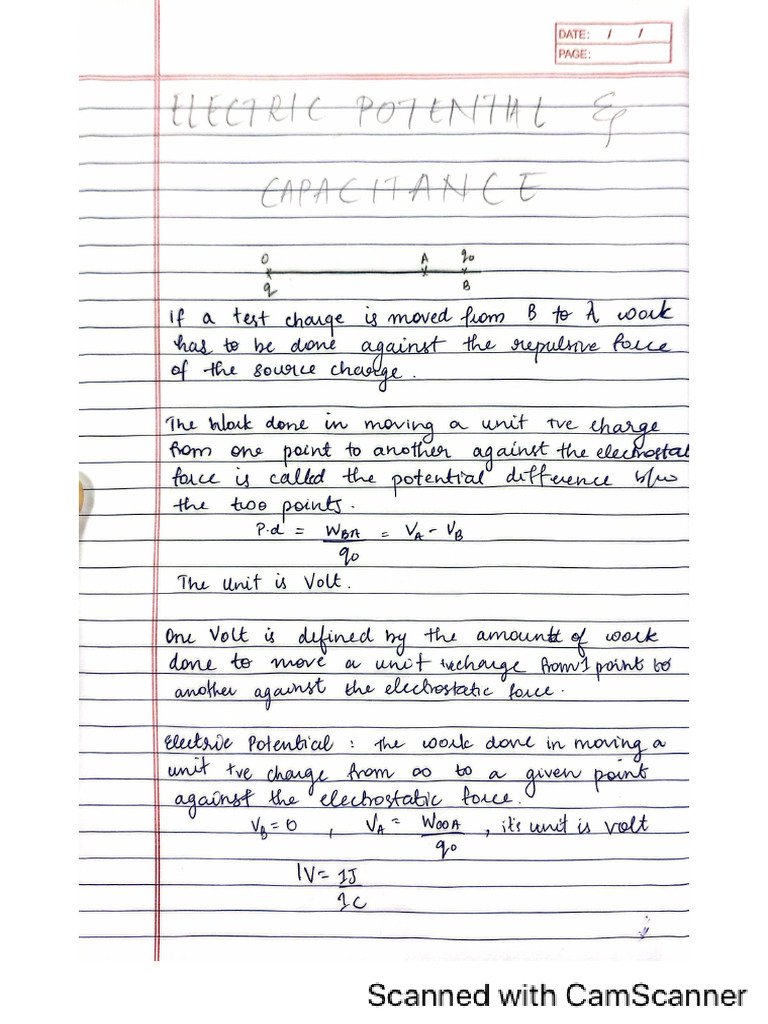 DATE: / /
PAGE:
ELECTRIC POTENTIAL &
CAPACITANCE
O A q₀
q B
If a test charge is moved from B to A work
has to be done against the repulsive force
of the source charge.
The Work done in moving a unit +ve charge
from one point to another against the electrostat
force is called the potential difference b/w
the two points.
P.d = W_BA = V_A - V_B
q₀
The Unit is Volt.
One Volt is defined by the amount of work
done to move a unit +vecharge from 1 point to
another against the electrostatic force.
Electric Potential : The work done in moving a
unit +ve charge from ∞ to a given point
against the electrostatic force.
V_B = 0 , V_A = W∞A , it's unit is volt
q₀
1V = 1J
1C
Scanned with CamScanner